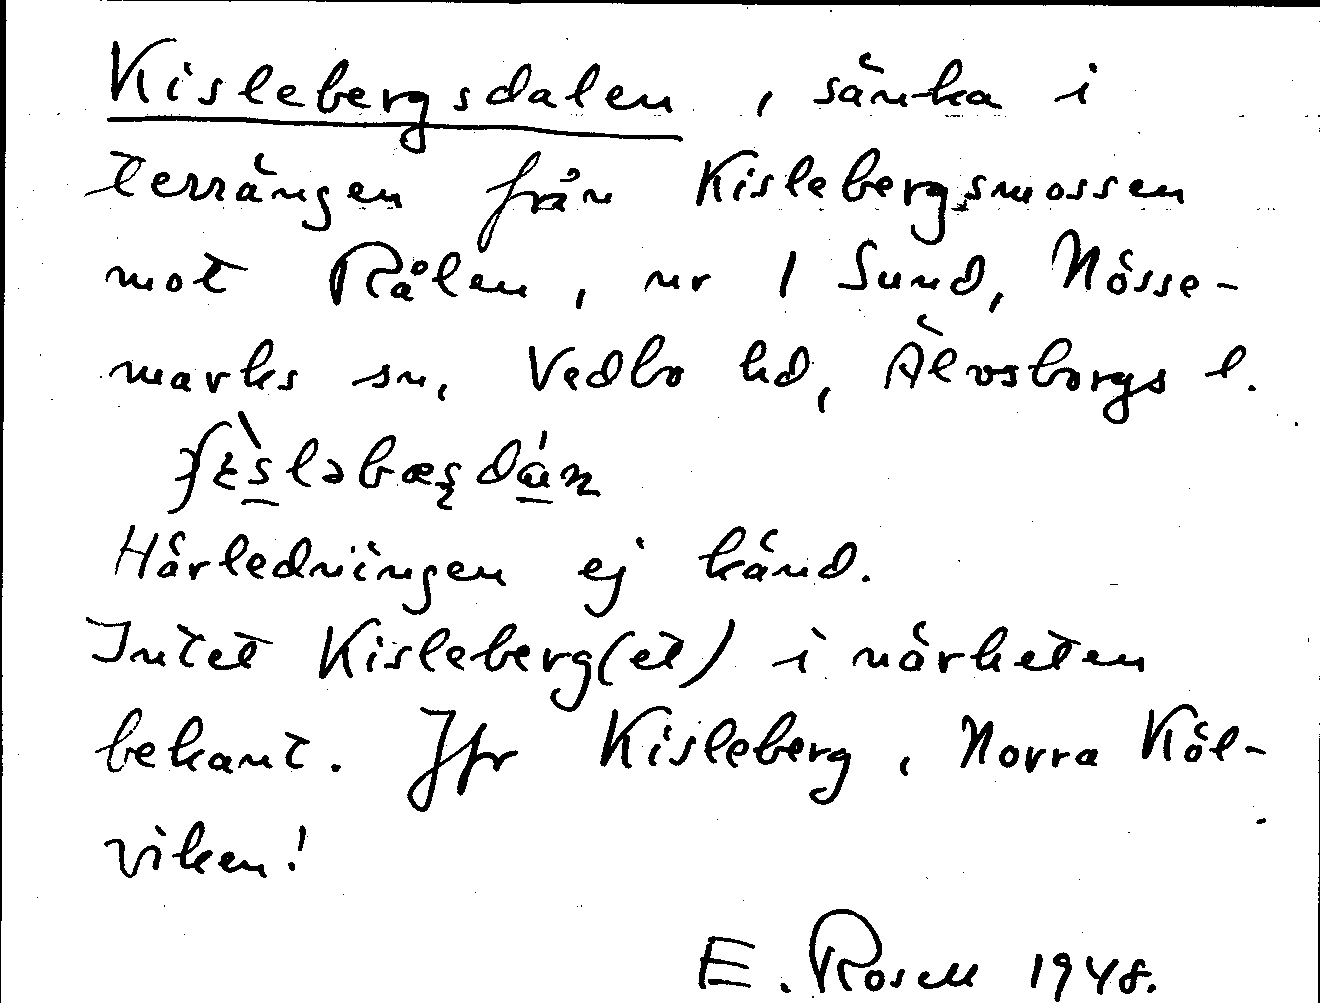 Kislebergsdalen, sänka i
terrängen från Kislebergsmossen
mot Rålen, nr 1 Sund, Nösse-
marks sn, Vedbo hd, Älvsborgs l.
Härledningen ej känd.
Intet Kisleberg(et) i närheten
bekant. Jfr Kisleberg, Norra Köl-
viken!
E. Rosell 1948.